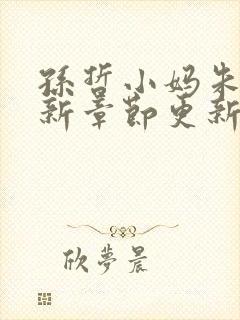 孫哲小妈朱
新章節更新
欣夢晨